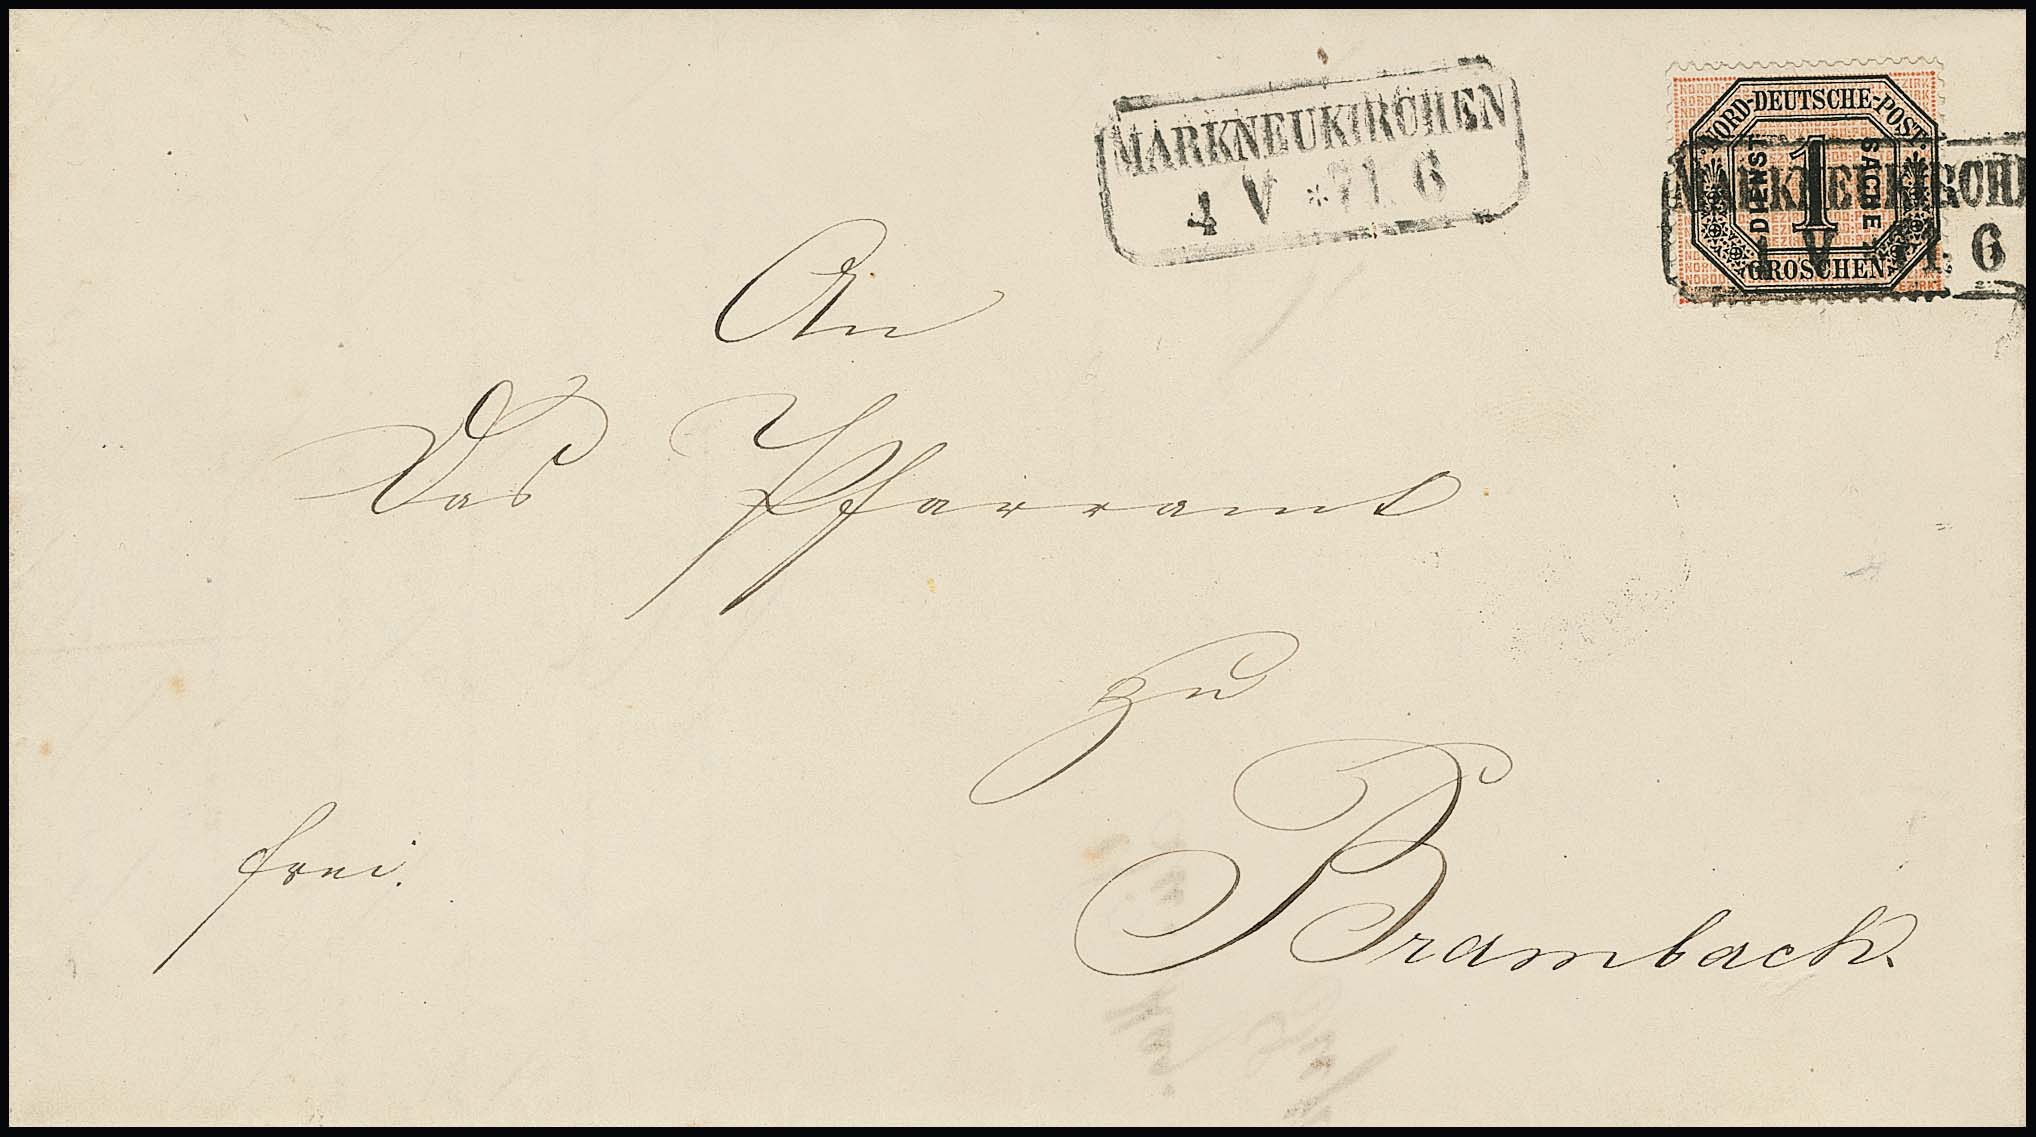 MARKNEUKIRCHEN
4 V *71. 6
NORD-DEUTSCHE-POST.
DIENST 1 SACHE
GROSCHEN
MARKNEUKIRCH
V 71. 6
An
Das Pfarramt
zu
Brambach.
frei.